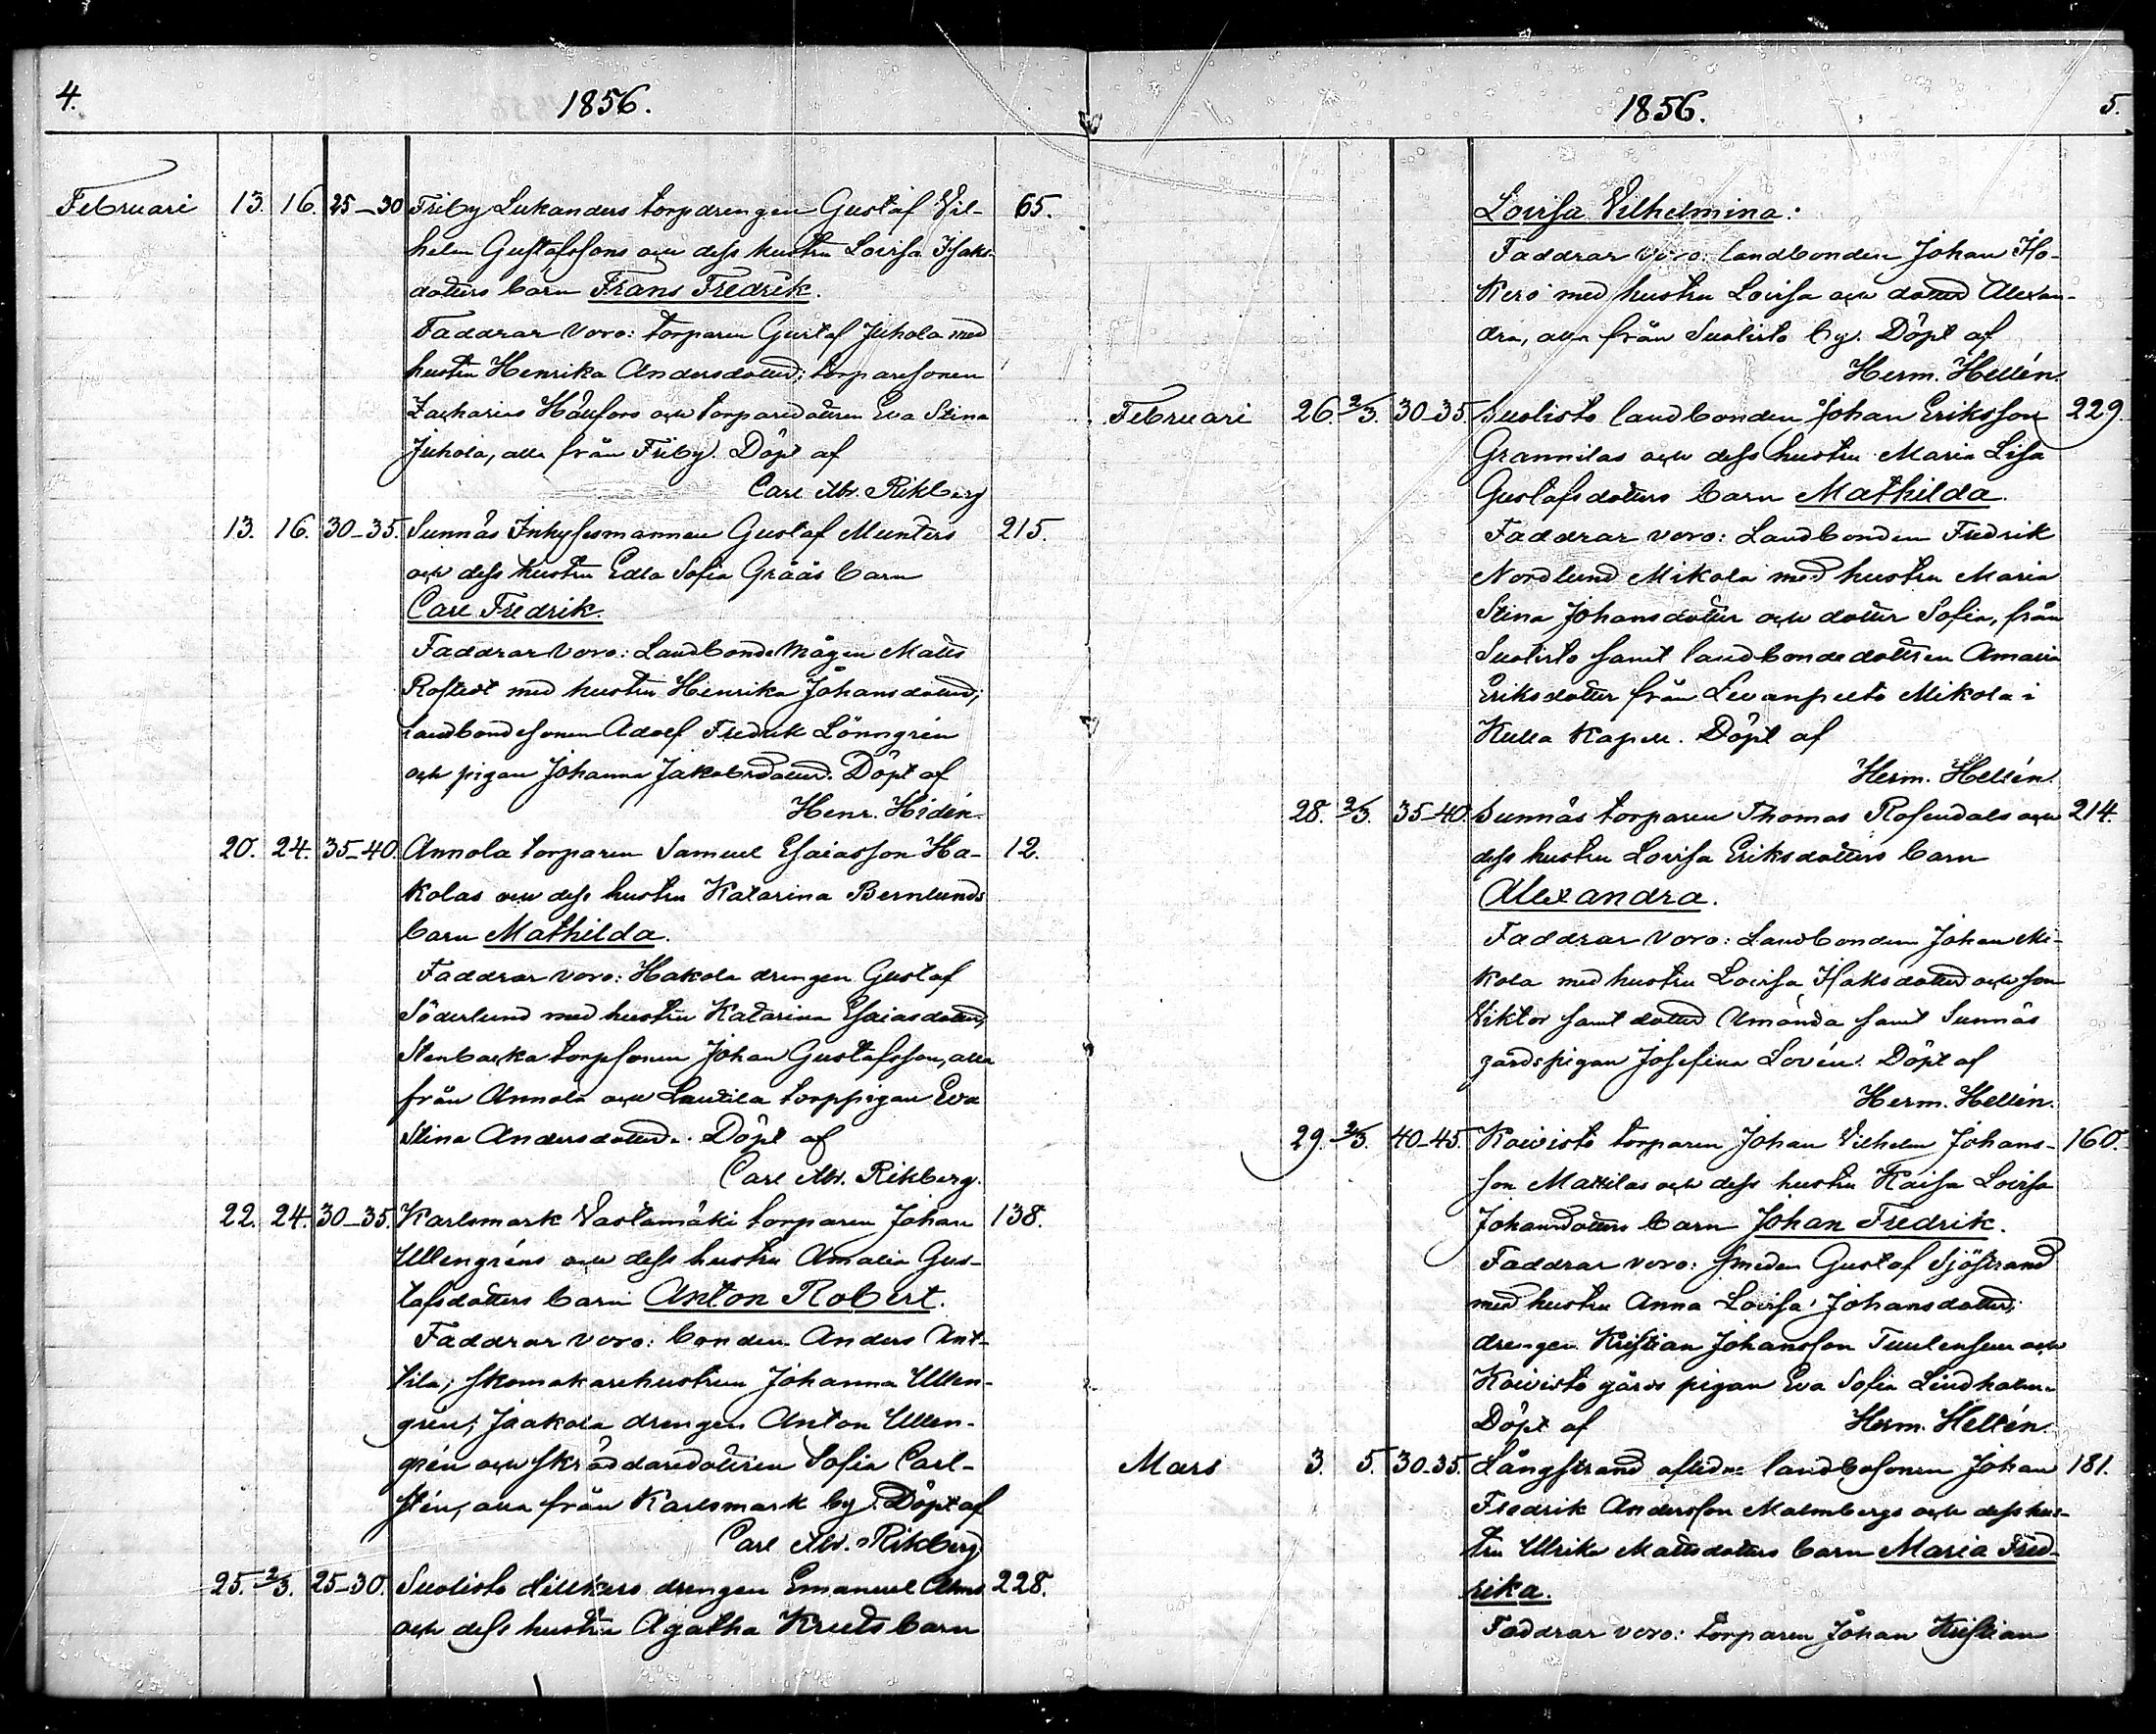 4.
1856.
Februari 13. 16. 25-30 Friby Lukanders torpdrengen Gustaf Vil- 65.
helm Gustafssons och dess hustru Lovisa Isaks-
dotters barn Frans Fredrik.
Faddrar voro: torparen Gustaf Juhola med
hustru Henrika Andersdotter; torparesonen
Zacharias Håufors och torparedottren Eva Stina
Juhola, alla från Friby. Döpt af
Carl Abr. Rikberg
13. 16. 30-35. Sunnäs Inhysesmannen Gustaf Munters 215.
och dess hustru Edla Sofia Grååås barn
Carl Fredrik.
Faddrar voro: Landbondemågen Matts
Rostedt med hustru Henrika Johansdotter;
landbondesonen Adolf Fredrik Lönngrén
och pigan Johanna Jakobsdotter. Döpt af
Henr. Hidén.
20. 24. 35-40. Annola torparen Samuel Esaiasson Ha- 12.
kolas och dess hustru Katarina Bernlunds
barn Mathilda.
Faddrar voro: Hakola drengen Gustaf
Söderlund med hustru Katarina Esaiasdotter,
Stenbacka torpsonen Johan Gustafsson, alla
från Annola och Lautila torppigan Eva
Stina Andersdotter. Döpt af
Carl Abr. Rikberg.
22. 24. 30-35. Karlsmark Vastamäki torparen Johan 138.
Ullengréns och dess hustru Amalia Gus-
tafsdotters barn Anton Robert.
Faddrar voro: bonden Anders Ant-
tila; skomakarehustrun Johanna Ullen-
grén; Jaakola drengen Anton Ullen-
grén och skräddaredottren Sofia Carl-
stén, alla från Karlsmark by. Döpt af
Carl Abr. Rikberg
25. 2/3. 25-30. Suolisto Hillkero drengen Emanuel Alms 228.
och dess hustru Agatha Kruts barn
1856.
5.
Lovisa Vilhelmina.
Faddrar voro: landbonden Johan Iso-
Kero med hustru Lovisa och dotter Alexan-
dra, alla från Suolisto by. Döpt af
Herm. Hellén.
Februari 26. 2/3. 30-35. Suolisto landbonden Johan Eriksson 229.
Grannilas och dess hustru Maria Lisa
Gustafsdotters barn Mathilda.
Faddrar voro: Landbonden Fredrik
Nordlund Mikola med hustru Maria
Stina Johansdotter och dotter Sofia, från
Suolisto samt landbondedottren Amalia
Eriksdotter från Levanpelto Mikola i
Kulla Kapell. Döpt af
Herm. Hellén.
28. 2/3. 35-40. Sunnäs torparen Thomas Rosendals och 214.
dess hustru Lovisa Eriksdotters barn
Alexandra.
Faddrar voro: Landbonden Johan Mi-
kola med hustru Lovisa Isaksdotter och son
Viktor samt dotter Amanda samt Sunnäs
gårdspigan Josefina Lovén. Döpt af
Herm. Hellén.
29. 2/3. 40-45. Koivisto torparen Johan Vilhelm Johans- 160.
son Mattilas och dess hustru Kaisa Lovisa
Johansdotters barn Johan Fredrik.
Faddrar voro: smeden Gustaf Sjöstrand
med hustru Anna Lovisa Johansdotter;
drengen Kristian Johansson Tuulensuu och
Koivisto gårds pigan Eva Sofia Lindholm.
Döpt af Herm. Hellén.
Mars 3. 5. 30-35. Långstrand aflidne landbosonen Johan 181.
Fredrik Andersson Malmbergs och dess hus-
tru Ulrika Mattsdotters barn Maria Fred-
rika.
Faddrar voro: torparen Johan Kristian